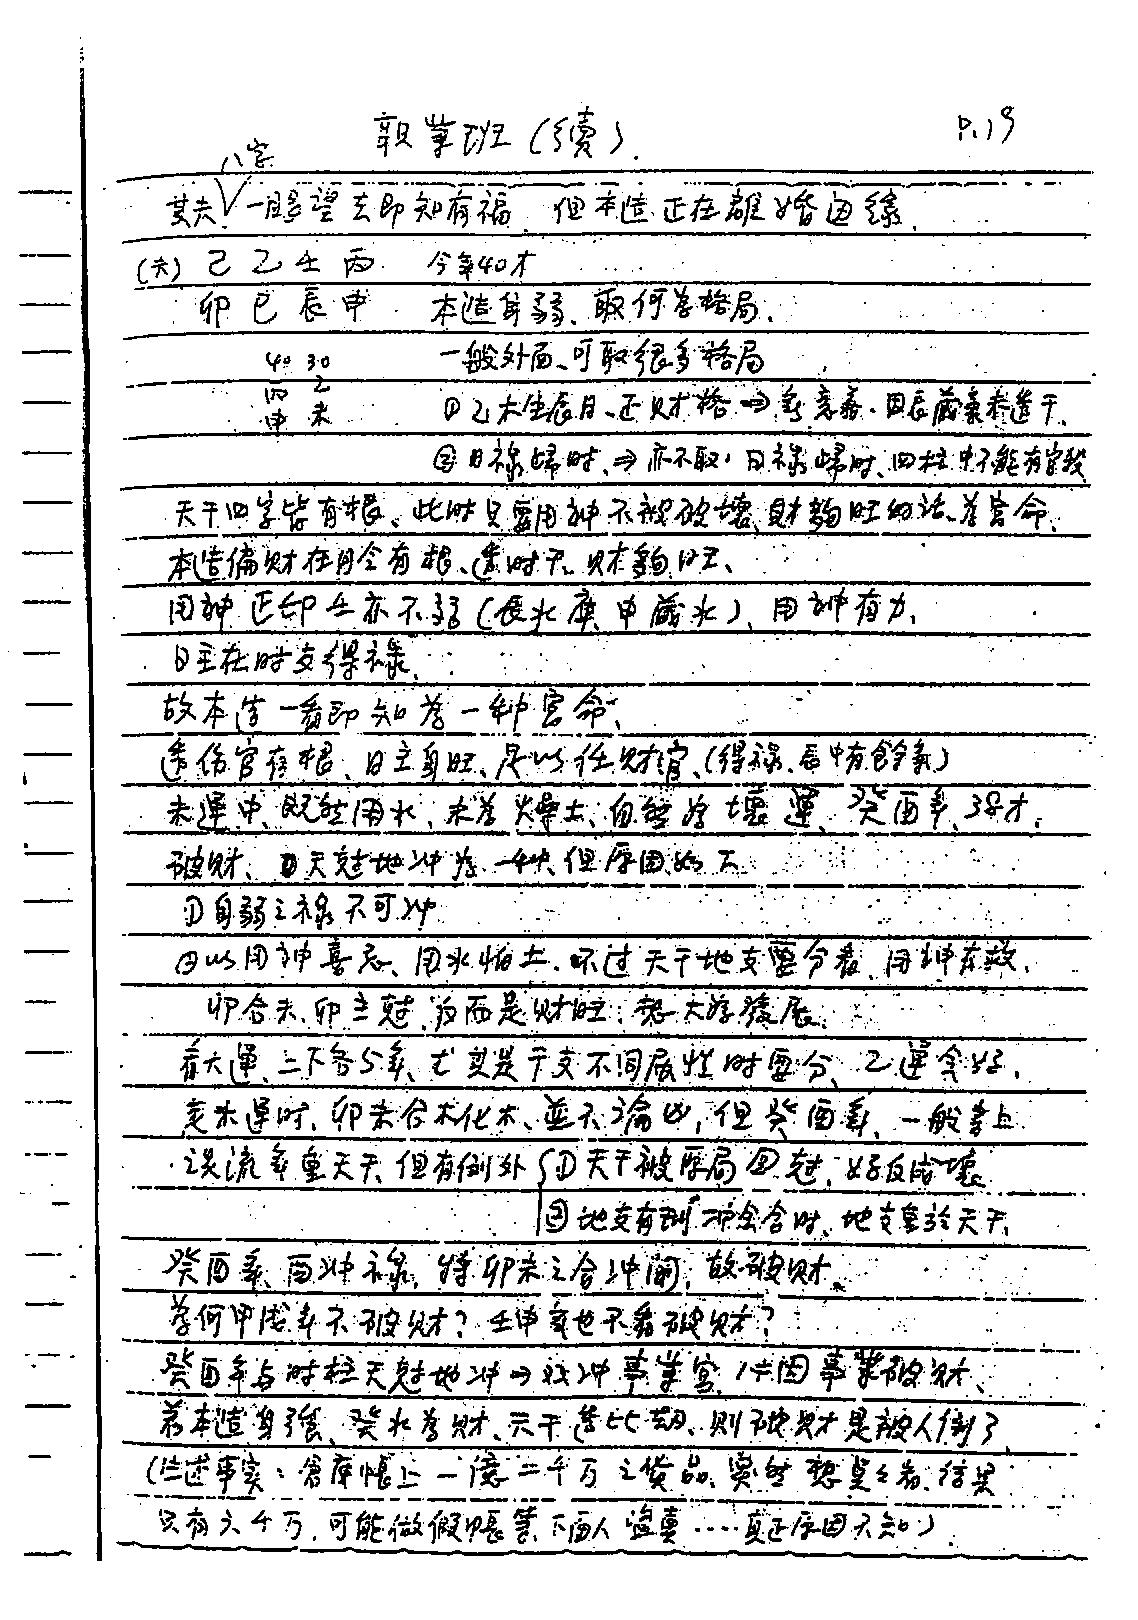 職業班(續). P.19
八字
其夫 一眼望去即知有福 但本造正在離婚邊緣.
(夫) 己乙壬丙 今年40才
卯巳辰申 本造身弱、取何為格局.
40 30 一般外面、可取很多格局
丙 乙
申 未 ①乙木生辰月、正財格→無意義.因辰藏氣未透干.
②日祿歸時、→亦不取.日祿歸時、四柱中不能有官殺
天干四字皆有根、此時只要用神不被破壞、財夠旺的話、為富命、
本造偏財在月令有根、透時干、財夠旺、
用神正印壬亦不弱(辰水庫、申藏水)、用神有力.
日主在時支得祿.
故本造一看即知為一種富命、
透傷官有根、日主身旺、足以任財官、(得祿、辰中有餘氣)
未運中、既然用水、未為燥土、自然為壞運、癸酉年、38才.
破財、因天剋地冲為一種、但原因如下
①身弱之祿不可冲
②以用神喜忌、用水怕土.不过天干地支要分看、用神有救.
卯合未、卯主剋、反而是財旺、想大為發展.
看大運、上下各5年、尤其是干支不同屬性時要分、乙運会好.
交未運時、卯未合木化木、並不論凶，但癸酉年、一般書上
說流年重天干、但有例外 ①天干被原局回剋，好反成壞.
②地支有刑冲会合時、地支重於天干.
癸酉年、酉冲祿、將卯未之合冲開，故破財.
為何甲戌年不破財?壬申年也不看破財?
癸酉年与時柱天剋地冲→双冲事業宮，1片因事業破財、
若本造身強、癸水為財、天干透比劫、則破財是被人倒了
(陳述事實:倉庫帳上一億二千万之貨品、突然想盤盤看、結果
只有六千万.可能做假帳等、下面人盜賣……真正原因不知)